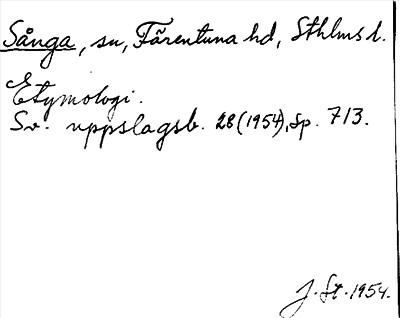 Sånga, sn, Färentuna hd, Sthlms l.
Etymologi.
Sv. uppslagsb. 28 (1954), sp. 713.
J. St. 1954.